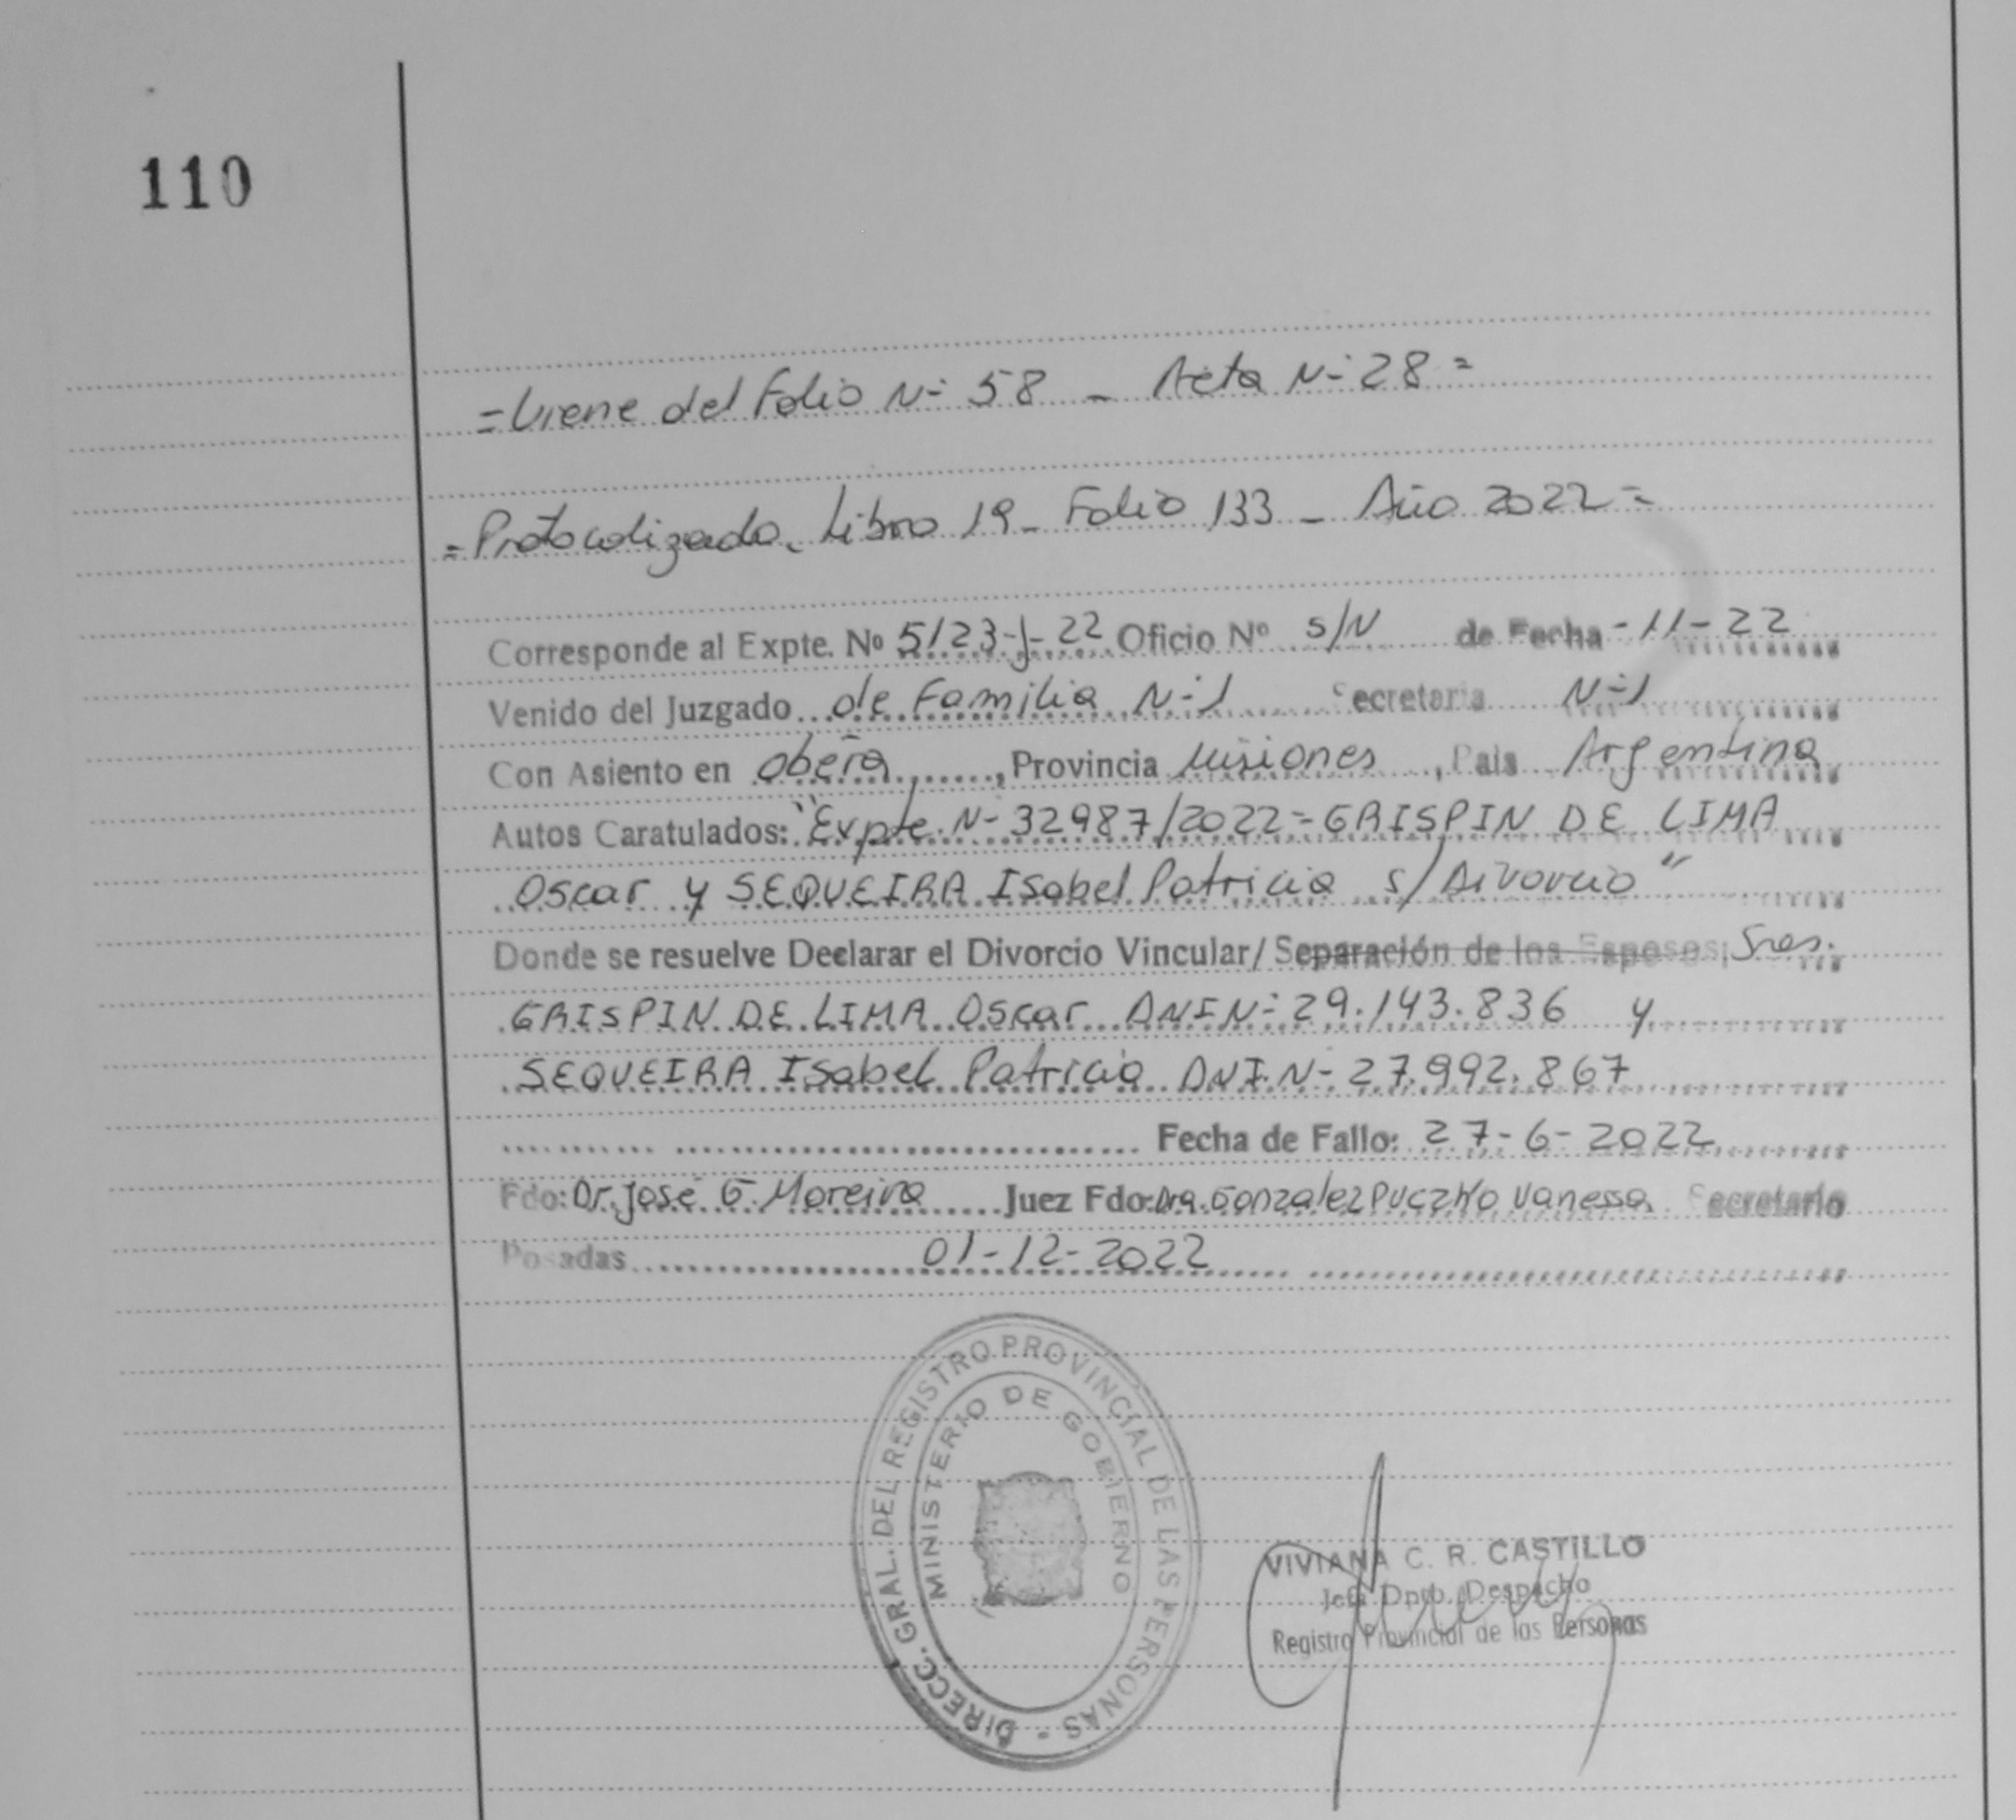 110
=Viene del Folio N- 58 - Acta N- 28=
=Protocolizado. Libro 19- Folio 133 - Año 2022=
Corresponde al Expte. Nº 5123-J-22 Oficio Nº S/N de Fecha -11-22
Venido del Juzgado de Familia N-1 Secretaria N-1
Con Asiento en Oberá, Provincia Misiones, Pais Argentina
Autos Caratulados: "Expte. N- 32987/2022-GRISPIN DE LIMA
Oscar y SEQUEIRA Isabel Patricia s/Divorcio"
Donde se resuelve Declarar el Divorcio Vincular/ Separación de los Esposos; Sres.
GRISPIN DE LIMA Oscar DNI N- 29.143.836 y
SEQUEIRA Isabel Patricia DNI. N- 27.992.867
Fecha de Fallo: 27-6-2022
Fdo: Dr. José G. Moreira Juez Fdo: Dra. Gonzalez Puczko Vanessa. Secretario
Posadas 01-12-2022
DIRECC. GRAL. DEL REGISTRO PROVINCIAL DE LAS PERSONAS -
MINISTERIO DE GOBIERNO
VIVIANA C. R. CASTILLO
Jefa Dpto. Despacho
Registro Provincial de las Personas